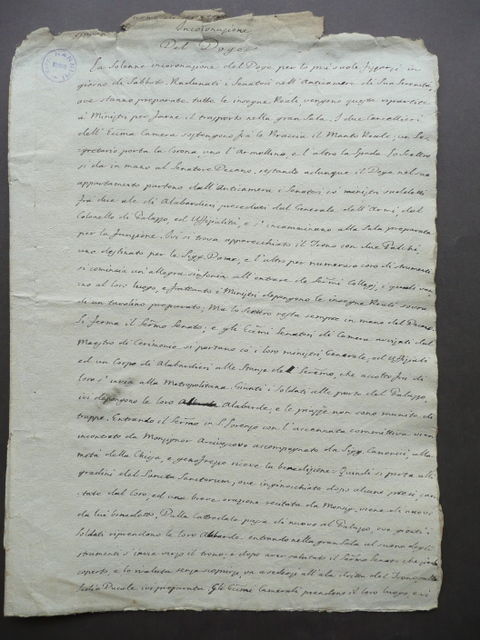 Incoronazione
Del Doge
La Solenne incoronazione del Doge per lo più suole farsi in
giorno di Sabbato. Radunati i Senatori nell'Anticamera di Sua Serenità,
ove stanno preparate tutte le insegne Reale, vengono queste ripartite
a' Ministri per farne il trasporto nella gran Sala. I due Cancellieri
dell'Ecc.ma Camera sostengono fra le Braccia il Manto Reale, un Se-
gretario porta la Corona, uno l'Armellino, e l'altro la Spada. Lo Scettro
si da in mano al Senatore Decano, restando adunque il Doge nel suo
appartamento partono dall'Anticamera i Senatori co' ministri suddetti
fra due ale di Alabardieri preceduti dal Generale dell'Armi, dal
Colonello di Palazzo, ed Uffizialità, e s'incamminano alla Sala preparata
per la funzione. Ivi si trova apparecchiato il Trono con due Palchi,
uno destinato per le Sigg. Dame, e l'altro per numeroso coro di strumenti
si comincia un'allegra sinfonia all'entrare de' Ser.mi Collegj, e quali van-
no al loro luogo, e frattanto i Ministri depongono le insegne Reali sovra
di un tavolino preparato; Ma lo Scettro resta sempre in mano del Decano
Si ferma il Ser.mo Senato, e gli Ecc.mi Senatori di Camera avvisati dal
Maestro di Cerimonie si portano co' loro ministri Generale, ed Uffizialità
ed un Corpo di Alabardieri alle Stanze del Seren.mo, che accolto fra di
loro s'invia alla Metropolitana. Giunti i Soldati alle porte del Palazzo,
ivi depongono le loro Alabarde, e le piazze non sono munite di
truppe. Entrando il Ser.mo in S. Lorenzo con l'accennata committiva vien
incontrato da Monsignor Arcivescovo accompagnato da Sigg. Canonici alla
metà della Chiesa, e genuflesso riceve la benedizione. Quindi si porta alli
gradini del Sancta Sanctorum, ove inginocchiato dopo alcune preci, can-
tate dal Coro, ed una breve orazione recitata da Monsig. viene di nuovo
da lui benedetto. Dalla Cattedrale passa di nuovo al Palazzo, ove giunti i
Soldati riprendono le loro Alabarde. entrando nella gran Sala al suono degli
strumenti s'invia verso il trono, e dopo aver salutato il Ser.mo Senato che siede
coperto, e lo risaluta senza sedia Ducale ivi preparata. Gli Ecc.mi Camerale prendono il loro luogo, e ivi